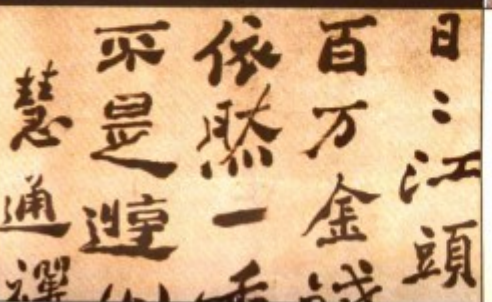 日〻江頭
百万金錢
依然一
是
慧通禪